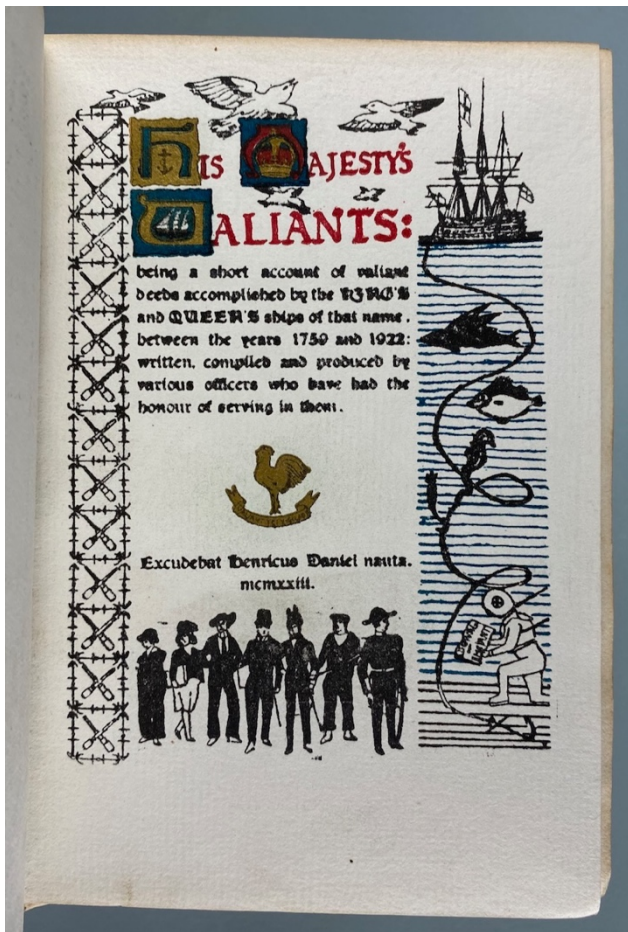 HIS MAJESTY'S
VALIANTS:
being a short account of valiant
deeds accomplished by the KING'S
and QUEEN'S ships of that name,
between the years 1759 and 1922:
written, compiled and produced by
various officers who have had the
honour of serving in them.
Excudebat Henricus Daniel nauta.
mcmxxiii.